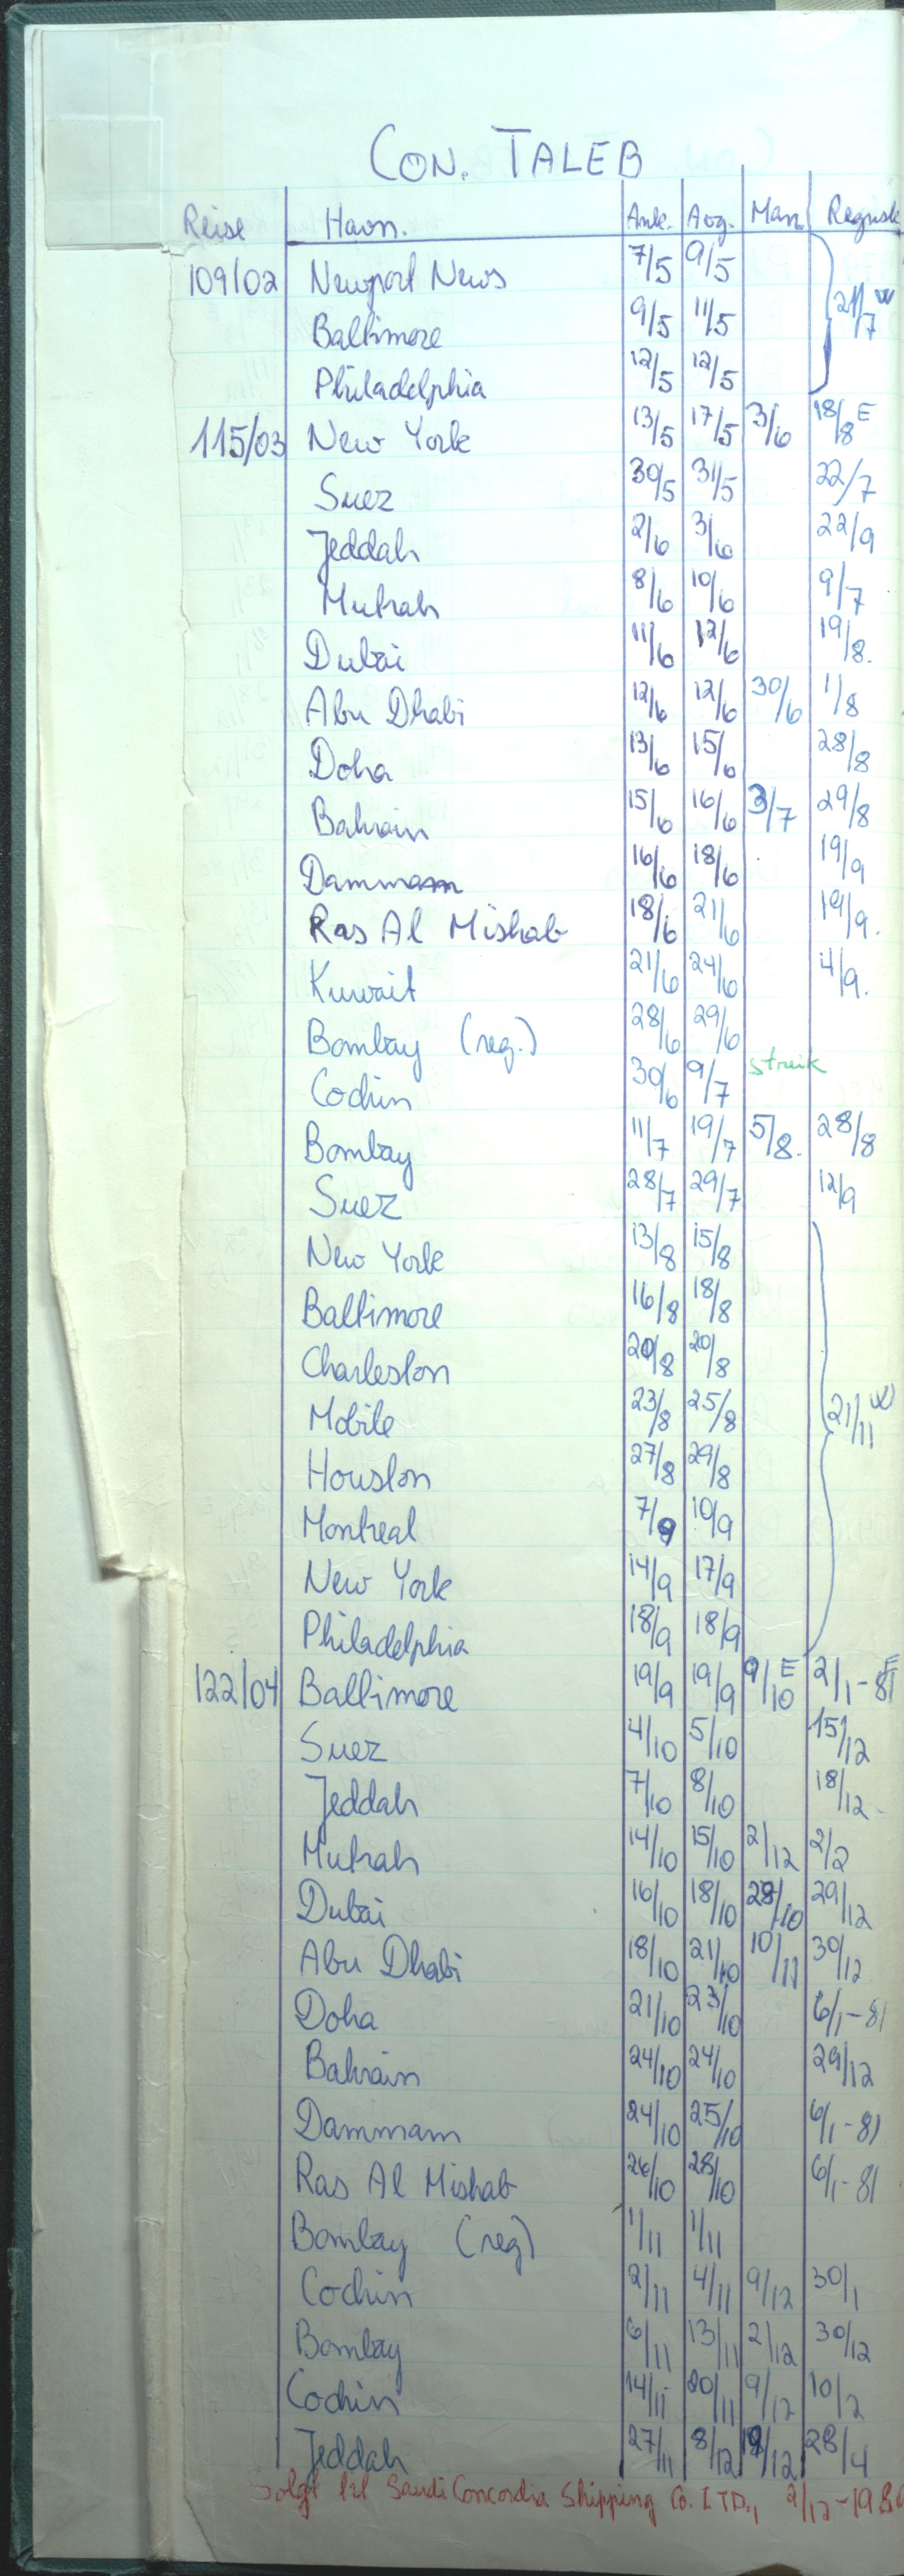 CON. TALEB
Reise Havn. Ank. Avg. Man Regnsk
109/02 Newport News 7/5 9/5
Baltimore 9/5 11/5 21/7 W
Philadelphia 12/5 12/5
115/03 New York 13/5 17/5 3/6 18/8 E
Suez 30/5 31/5 22/7
Jeddah 2/6 3/6 22/9
Mutrah 8/6 10/6 9/7
Dubai 11/6 12/6 19/8.
Abu Dhabi 12/6 12/6 30/6 1/8
Doha 13/6 15/6 28/8
Bahrain 15/6 16/6 3/7 29/8
Dammam 16/6 18/6 19/9
Ras Al Mishab 18/6 21/6 19/9.
Kuwait 21/6 24/6 4/9.
Bombay (reg.) 28/6 29/6
Cochin 30/6 9/7 streik
Bombay 11/7 19/7 5/8. 28/8
Suez 28/7 29/7 12/9
New York 13/8 15/8
Baltimore 16/8 18/8
Charleston 20/8 20/8
Mobile 23/8 25/8 21/11 W
Houston 27/8 29/8
Montreal 7/9 10/9
New York 14/9 17/9
Philadelphia 18/9 18/9
122/04 Baltimore 19/9 19/9 9/10 E 2/1-81 E
Suez 4/10 5/10 15/12
Jeddah 7/10 8/10 18/12
Mutrah 14/10 15/10 2/12 2/2
Dubai 16/10 18/10 28/10 29/12
Abu Dhabi 18/10 21/10 10/11 30/12
Doha 21/10 23/10 6/1-81
Bahrain 24/10 24/10 29/12
Dammam 24/10 25/10 6/1-81
Ras Al Mishab 26/10 28/10 6/1-81
Bombay (reg) 1/11 1/11
Cochin 2/11 4/11 9/12 30/1
Bombay 6/11 13/11 2/12 30/12
Cochin 14/11 20/11 9/12 10/2
Jeddah 27/11 8/12 28/4
Solgt til Saudi Concordia Shipping Co. LTD., 2/12-1980